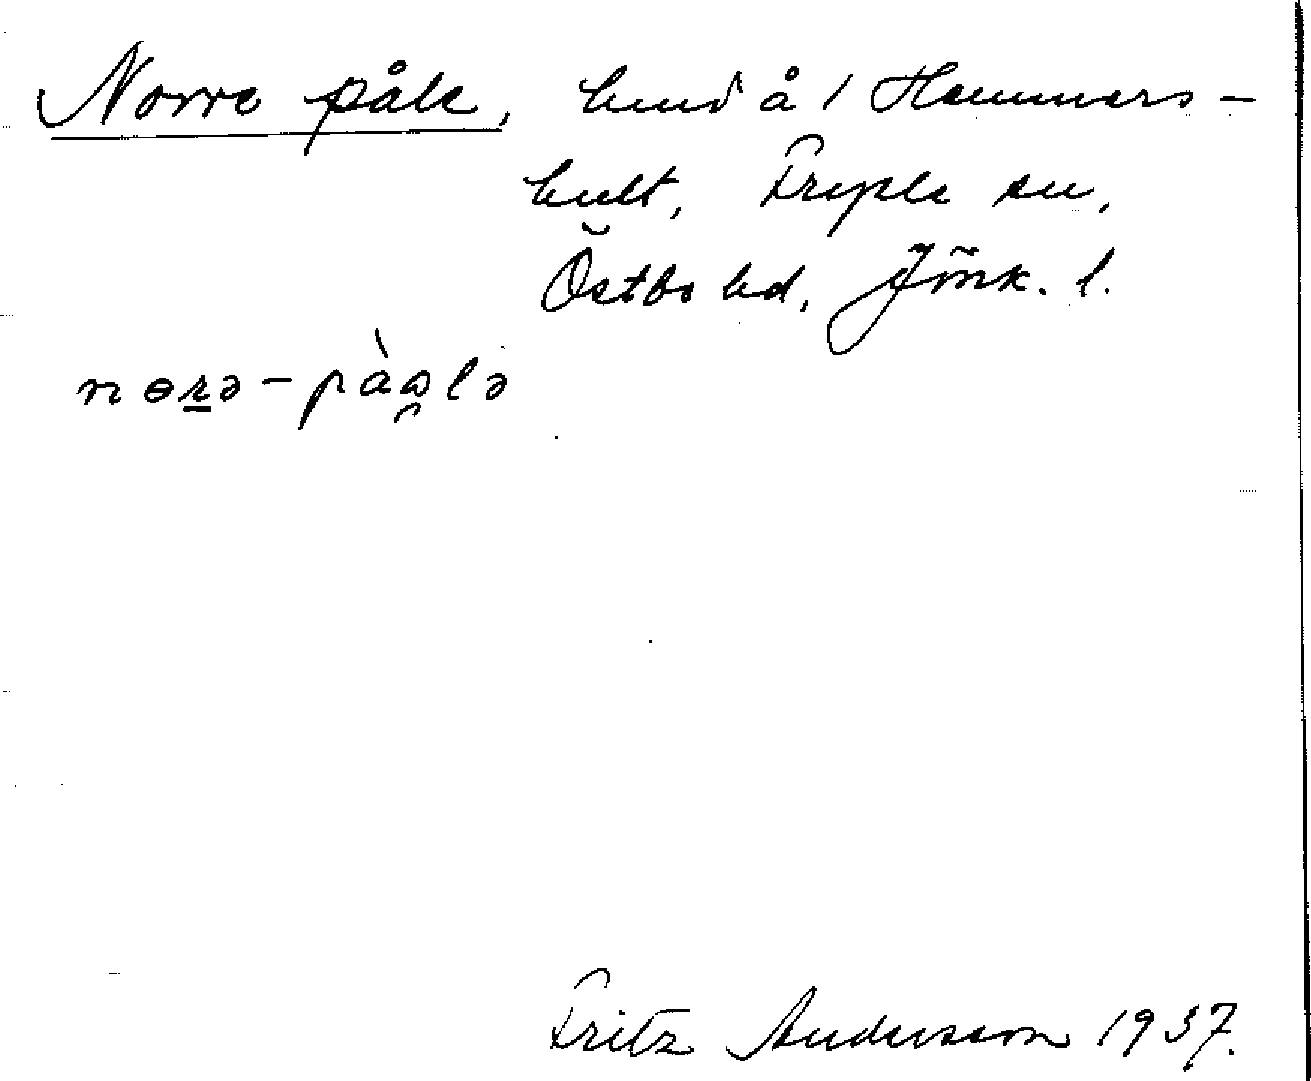 Norre påle, lund å 1 Hammars-
hult, Fryele sn,
Östbo hd, Jönk. l.
nɵr̲ə-pàɷ̯lə
Fritz Andersson 1937.